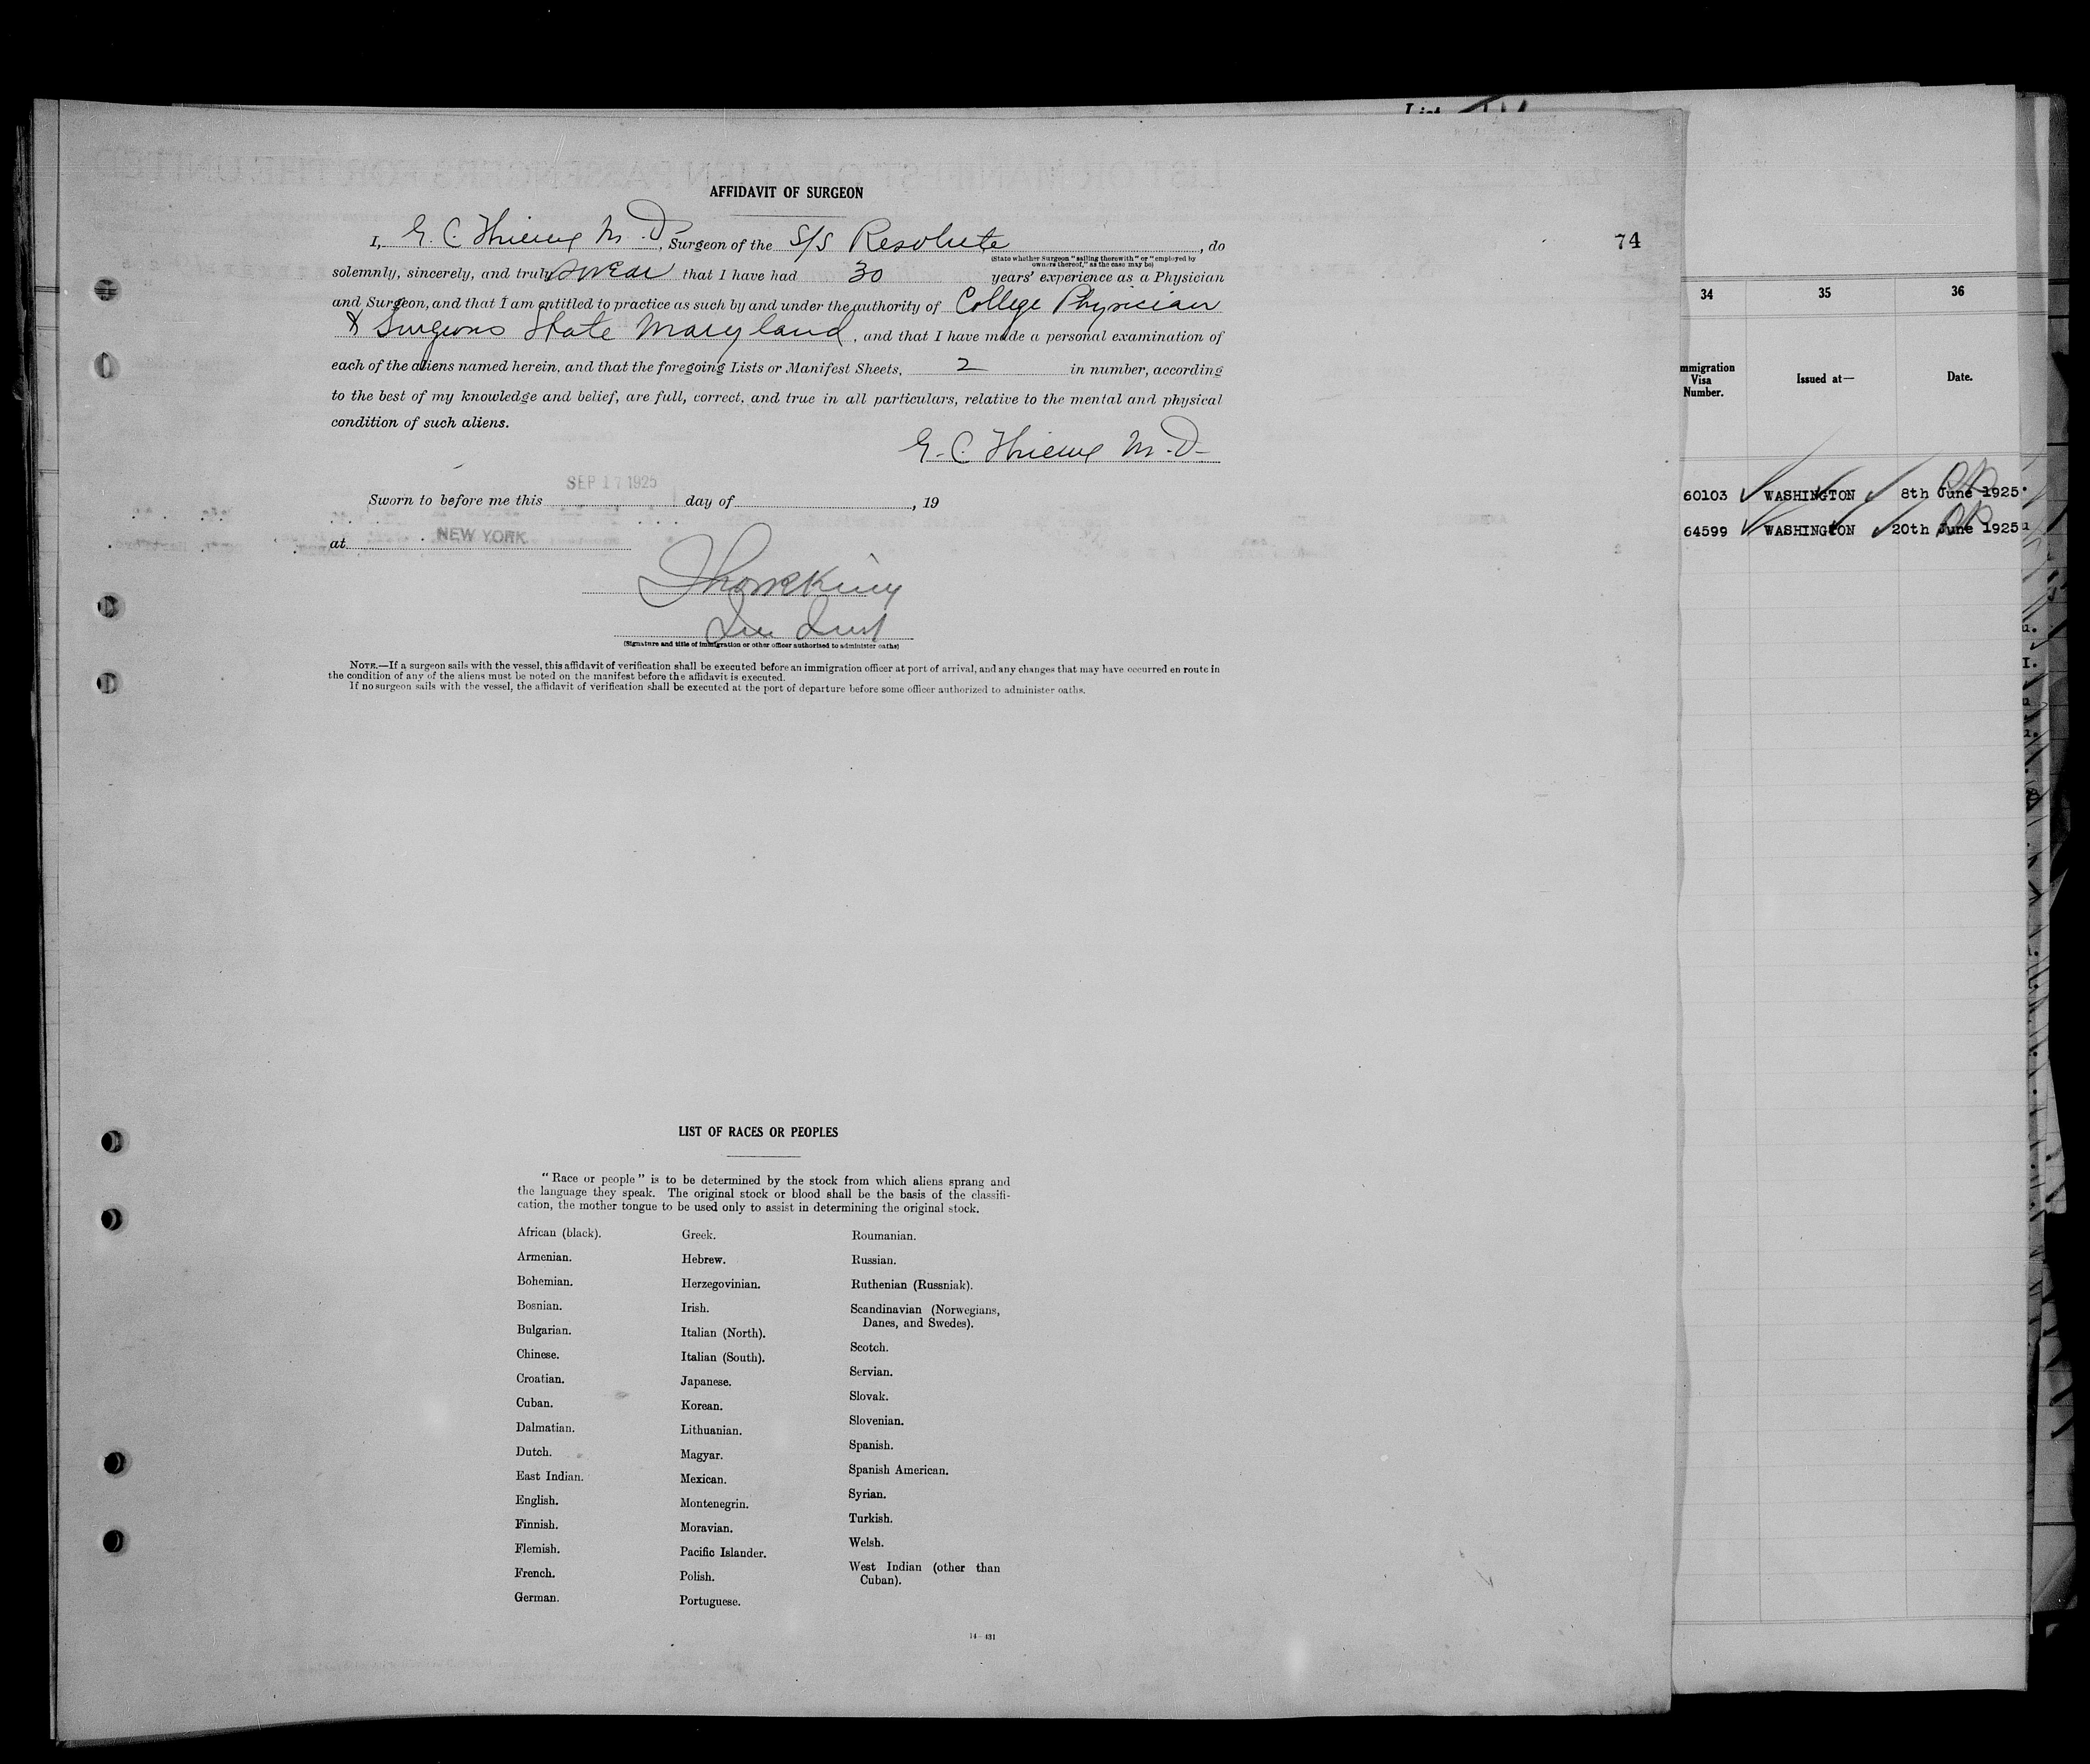 AFFIDAVIT OF SURGEON
I, E. C. Thieme M.D., Surgeon of the S/S Resolute, do
(State whether Surgeon "sailing therewith" or "employed by
owners thereof," as the case may be)
solemnly, sincerely, and truly swear that I have had 30 years' experience as a Physician
and Surgeon, and that I am entitled to practice as such by and under the authority of College Physician
& Surgeons State Maryland, and that I have made a personal examination of
each of the aliens named herein, and that the foregoing Lists or Manifest Sheets, 2 in number, according
to the best of my knowledge and belief, are full, correct, and true in all particulars, relative to the mental and physical
condition of such aliens.
E. C. Thieme M.D.
SEP 17 1925
Sworn to before me this day of , 19
at NEW YORK
(Signature and title of immigration or other officer authorized to administer oaths)
NOTE.—If a surgeon sails with the vessel, this affidavit of verification shall be executed before an immigration officer at port of arrival, and any changes that may have occurred en route in
the condition of any of the aliens must be noted on the manifest before the affidavit is executed.
If no surgeon sails with the vessel, the affidavit of verification shall be executed at the port of departure before some officer authorized to administer oaths.
74
LIST OF RACES OR PEOPLES
"Race or people" is to be determined by the stock from which aliens sprang and
the language they speak. The original stock or blood shall be the basis of the classifi-
cation, the mother tongue to be used only to assist in determining the original stock.
African (black).
Armenian.
Bohemian.
Bosnian.
Bulgarian.
Chinese.
Croatian.
Cuban.
Dalmatian.
Dutch.
East Indian.
English.
Finnish.
Flemish.
French.
German.
Greek.
Hebrew.
Herzegovinian.
Irish.
Italian (North).
Italian (South).
Japanese.
Korean.
Lithuanian.
Magyar.
Mexican.
Montenegrin.
Moravian.
Pacific Islander.
Polish.
Portuguese.
Roumanian.
Russian.
Ruthenian (Russniak).
Scandinavian (Norwegians,
Danes, and Swedes).
Scotch.
Servian.
Slovak.
Slovenian.
Spanish.
Spanish American.
Syrian.
Turkish.
Welsh.
West Indian (other than
Cuban).
14—431
List
34 35 36
mmigration
Visa
Number.
Issued at—
Date.
60103 WASHINGTON 8th June 1925
64599 WASHINGTON 20th June 1925